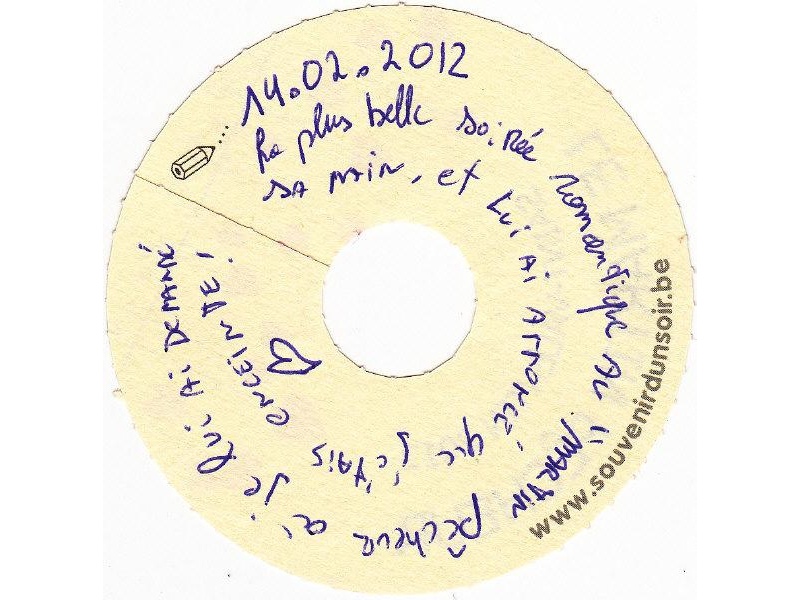 14.02.2012
La plus belle soirée romantique au "MARTIN pêcheur où je lui Ai DEMANDÉ
SA MAIN, et Lui Ai ANNONCÉ que j'étAis enceinte!
www.souvenirdunsoir.be